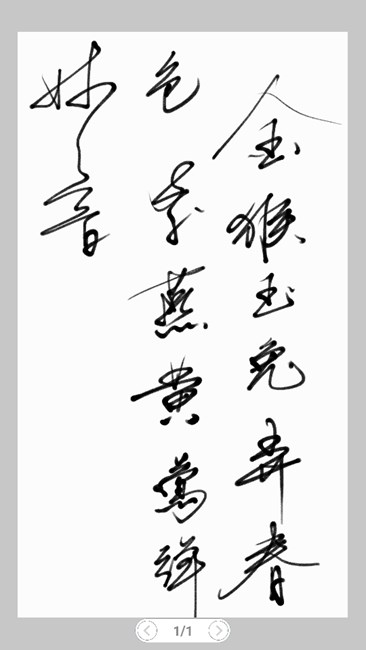 金猴玉兔弄春
色紫燕黄莺弹
妙音
1/1